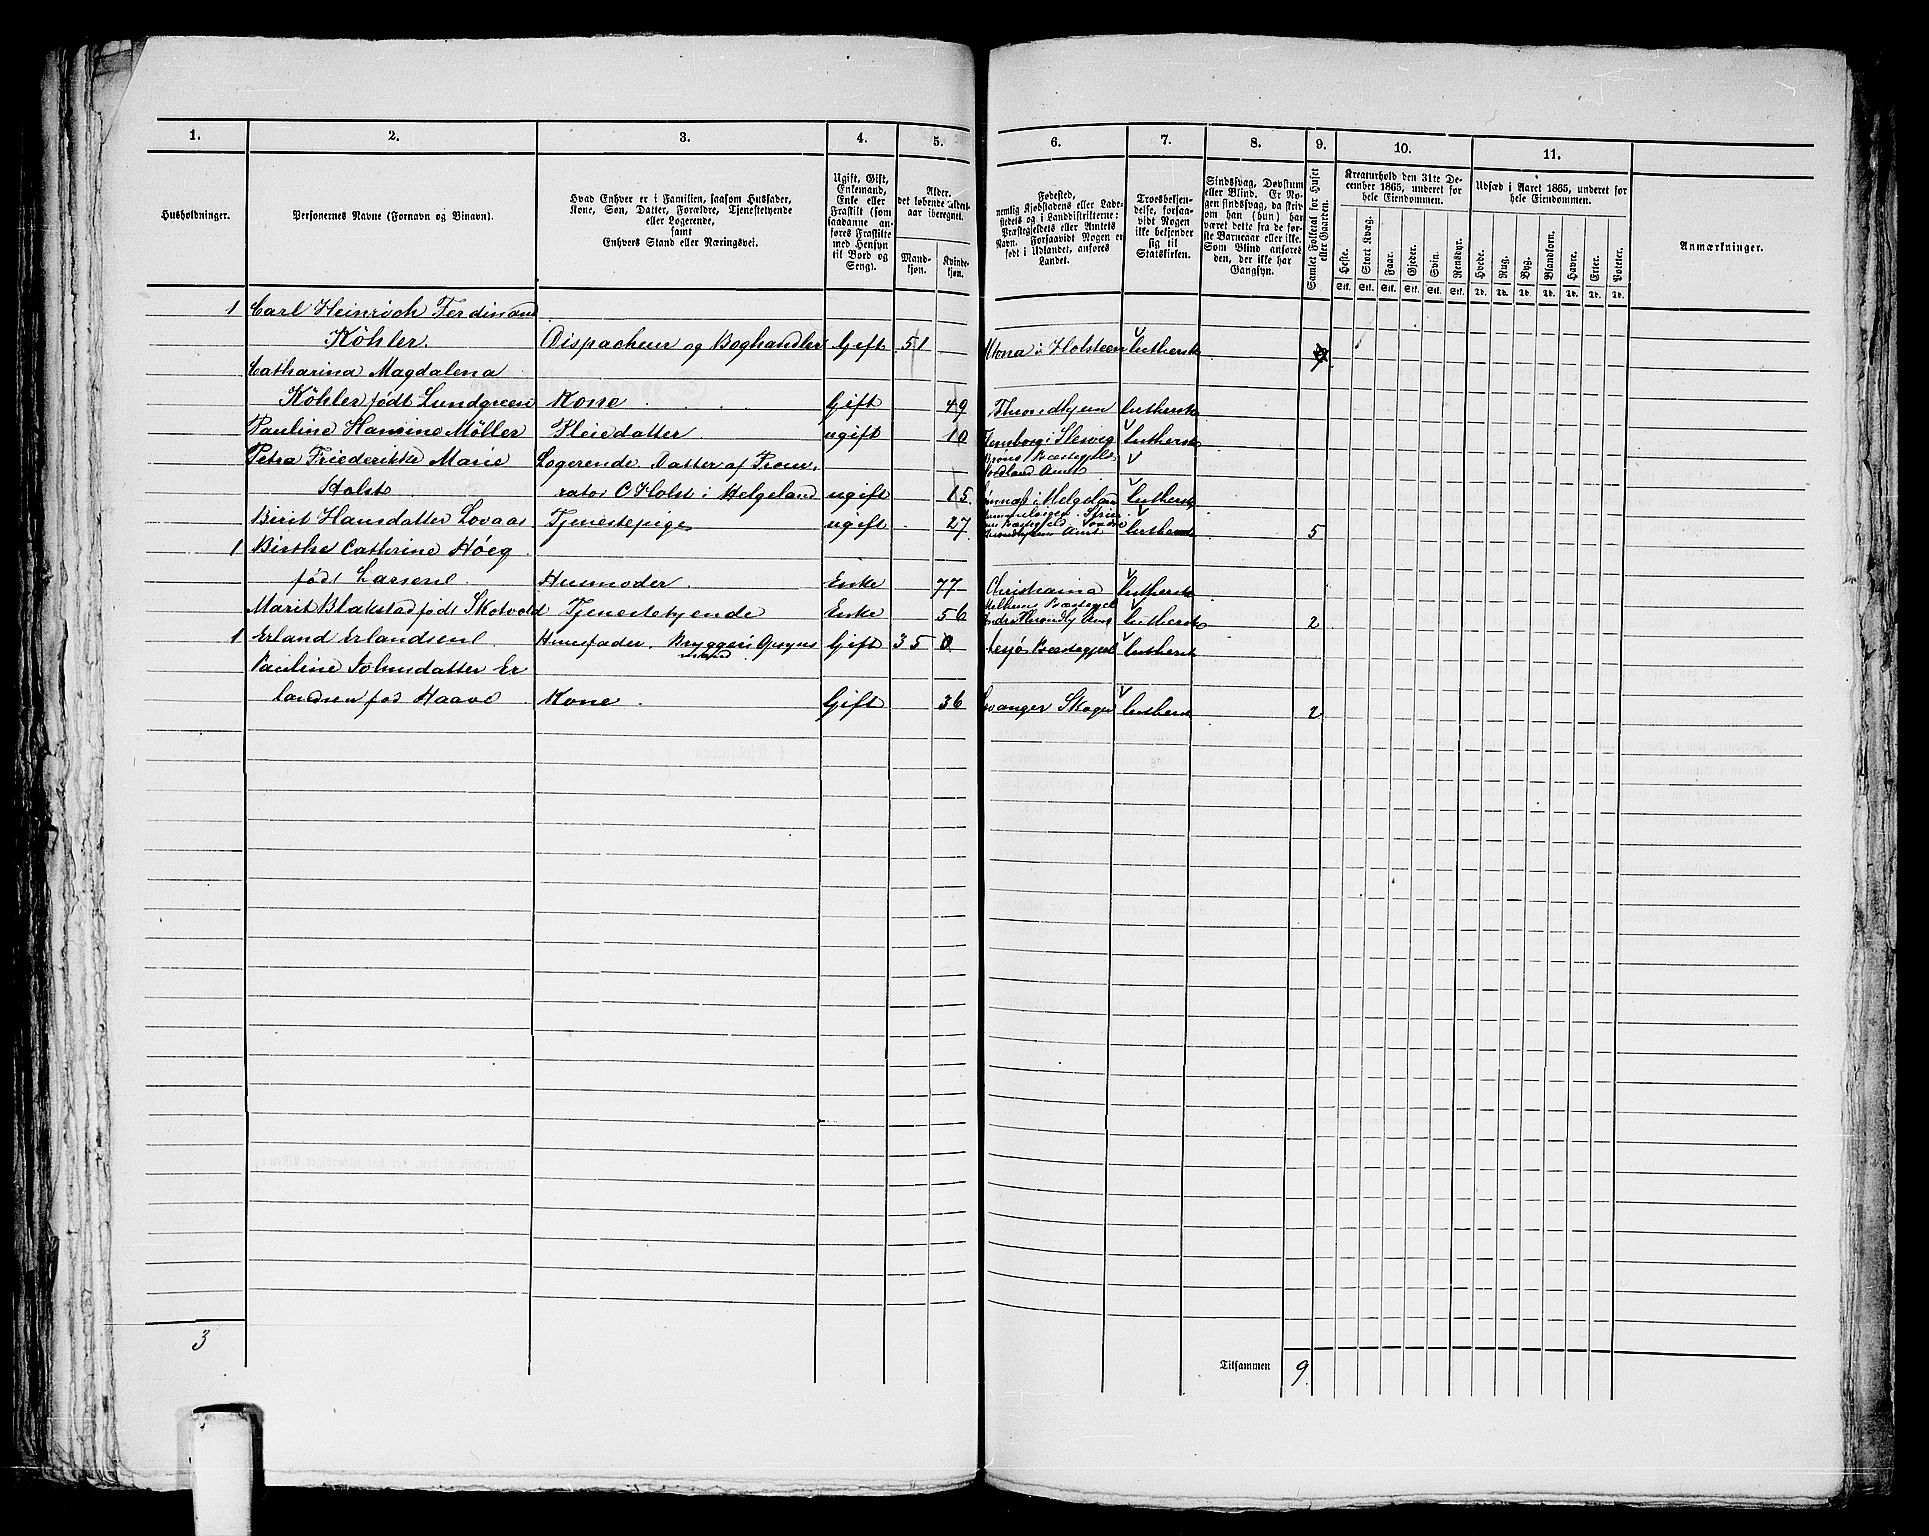 1. 2. 3. 4. 5. 6. 7. 8. 9. 10. 11.
Husholdninger.
Personernes Navne (Fornavn og Binavn).
Hvad Enhver er i Familien, saasom Husfader,
Kone, Søn, Datter, Forældre, Tjenestetyende
eller Logerende,
samt
Enhvers Stand eller Næringsvei.
Ugift, Gift,
Enkemand,
Enke eller
Fraskilt (som
saadanne an-
føres Fraskilte
med Hensyn
til Bord og
Seng).
Alder,
det løbende Alders-
aar iberegnet.
Mand-
kjøn.
Kvinde-
kjøn.
Fødested,
nemlig Kjøbstadens eller Lade-
stedets og i Landdistrikterne:
Præstegjeldets eller Amtets
Navn. Forsaavidt Nogen er
født i Udlandet, anføres
Landet.
Troesbekjen-
delse, forsaa-
vidt Nogen
ikke bekjender
sig til
Statskirken.
Sindssvag, Døvstum
eller Blind. Er No-
gen sindssvag, da skriv
om han (hun) har
været dette fra de før-
ste Barneaar eller ikke.
Som Blind anføres
den, der ikke har
Gangsyn.
Samlet Folketal for Huset
eller Gaarden.
Kreaturhold den 31te De-
cember 1865, underet for
hele Eiendommen.
Heste. Stort Kvæg. Faar. Gjeder. Svin. Rensdyr.
Stk. Stk. Stk. Stk. Stk. Stk.
Udsæd i Aaret 1865, underet for
hele Eiendommen.
Hvede. Rug. Byg. Blandkorn. Havre. Erter. Poteter.
Td. Td. Td. Td. Td. Td. Td.
Anmærkninger.
1 Carl Heinrich Ferdinand
Köhler. Dispacheur og Boghandler Gift 51 Altona i Holsteen luthersk 7
Catharina Magdalena
Köhler født Lundgreen Kone Gift 49 Throndhjem luthersk
Pauline Hansine Möller Pleiedatter ugift 10 Flensborg i Slesvig luthersk
Petra Friederikke Marie Logerende, Datter af Procu- Brønø Præstegjeld Nordland Amt
Holst rator C Holst i Helgeland ugift 15 i Helgeland luthersk
Birit Hansdatter Lovaas Tjenestepige ugift 27 Præstegjeld Søndre Trondhjem Amt luthersk 5
1 Birthe Cathrine Höeg
født Larsen Husmoder Enke 77 Christiania luthersk
Marit Blakstad født Skotvold Tjenestetyende Enke 56 Melhuus Præstegjel Søndre Throndhj Amt luthersk 2
1 Erland Erlandsen Huusfader, Bryggeri Opsynsmand Gift 35 0 Lesjø Præstegjeld luthersk
Pauline Johnsdatter Er
landsen fød Haave Kone Gift 36 Levanger Skogn luthersk 2
3
Tilsammen 9